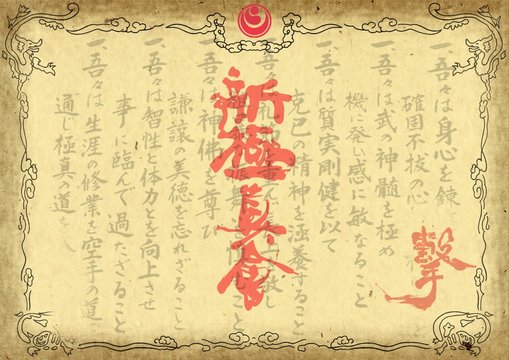 一吾々は身心を錬
確固不拔の心
一吾々は武の神髄を極め
機に発し感に敏なること
一吾々は質実剛健を以て
克己の精神を涵養すること
吾々は礼
振舞 こと
一吾々は神佛を尊び
謙譲の美徳を忘れざること
一吾々は智性と体力とを向上させ
事に臨んで過たざること
一吾々は生涯の修業を空手の道
通じ極真の道を
新極真會
撃